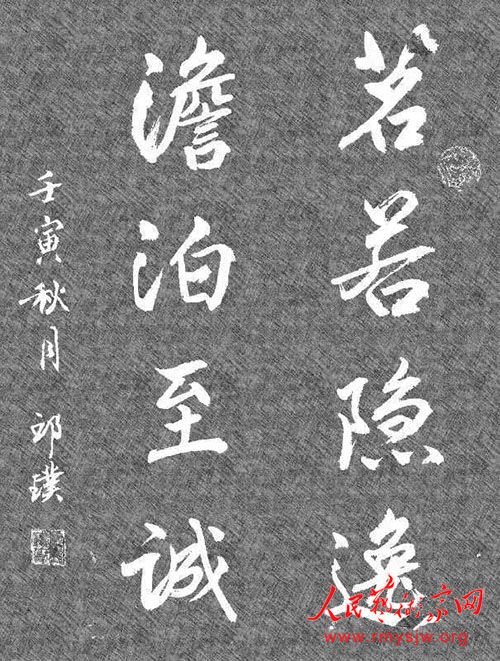 茗若隐逸
澹泊至誠
壬寅秋月 邱璞
人民艺术家网
www.rmysjw.org